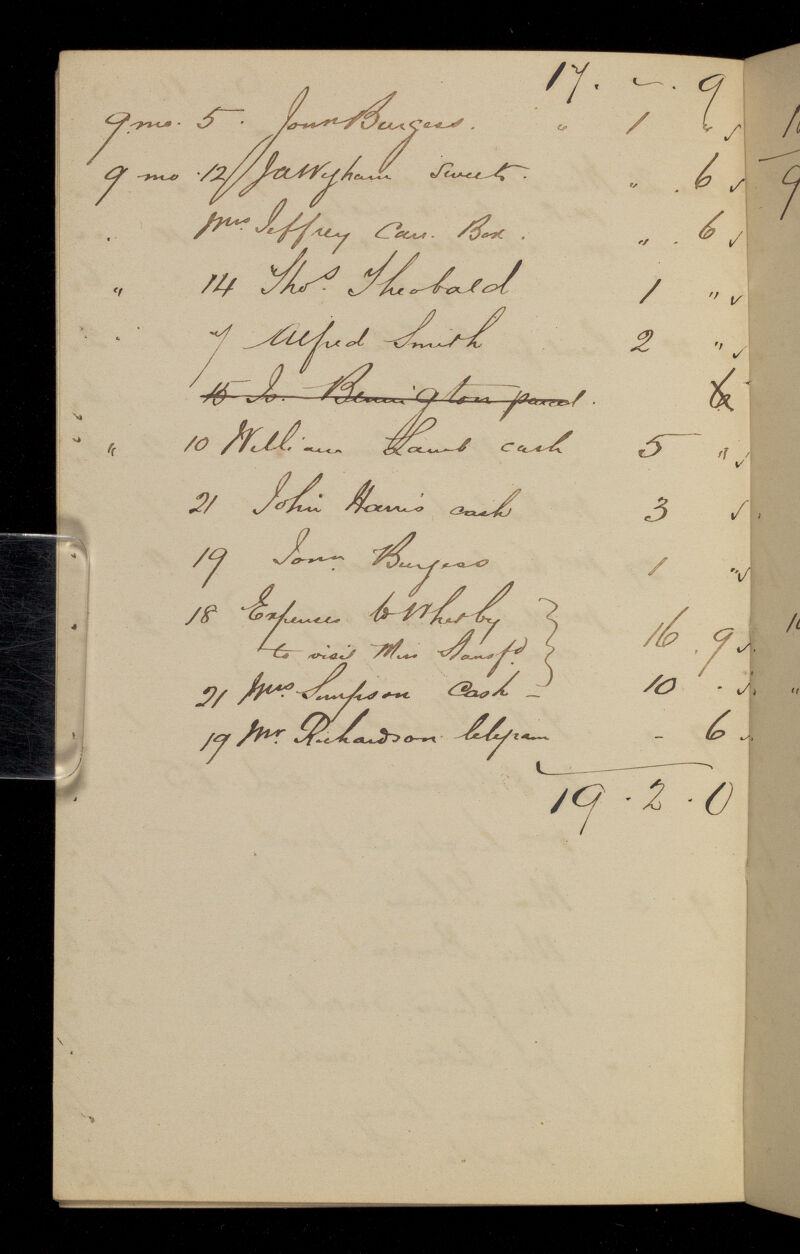 17. ~. 9
9 mo. 5. Jonn Burgess. " 1 " ✓
9 mo. 12 Ja Wigham Sweets. " . 6 ✓
. Mrs. Jeffrey Carr. Box. " . 6 ✓
" 14 Thos. Theobald 1 " ✓
" 7 Alfred Smith 2 " ✓
15 Jo. Bennington parcel. 6
" 10 William Lamb cash 5 " ✓
21 John Harris cash 3 ✓
19 Jonn. Burgess 1 " ✓
18 Expenses to Whitby
to visit Miss Stansfd. 16 . 9 ✓
21 Mrs Simpson Cash – 10 . ✓
19 Mr. Richardson telegram - 6 ✓
19 . 2 . 0